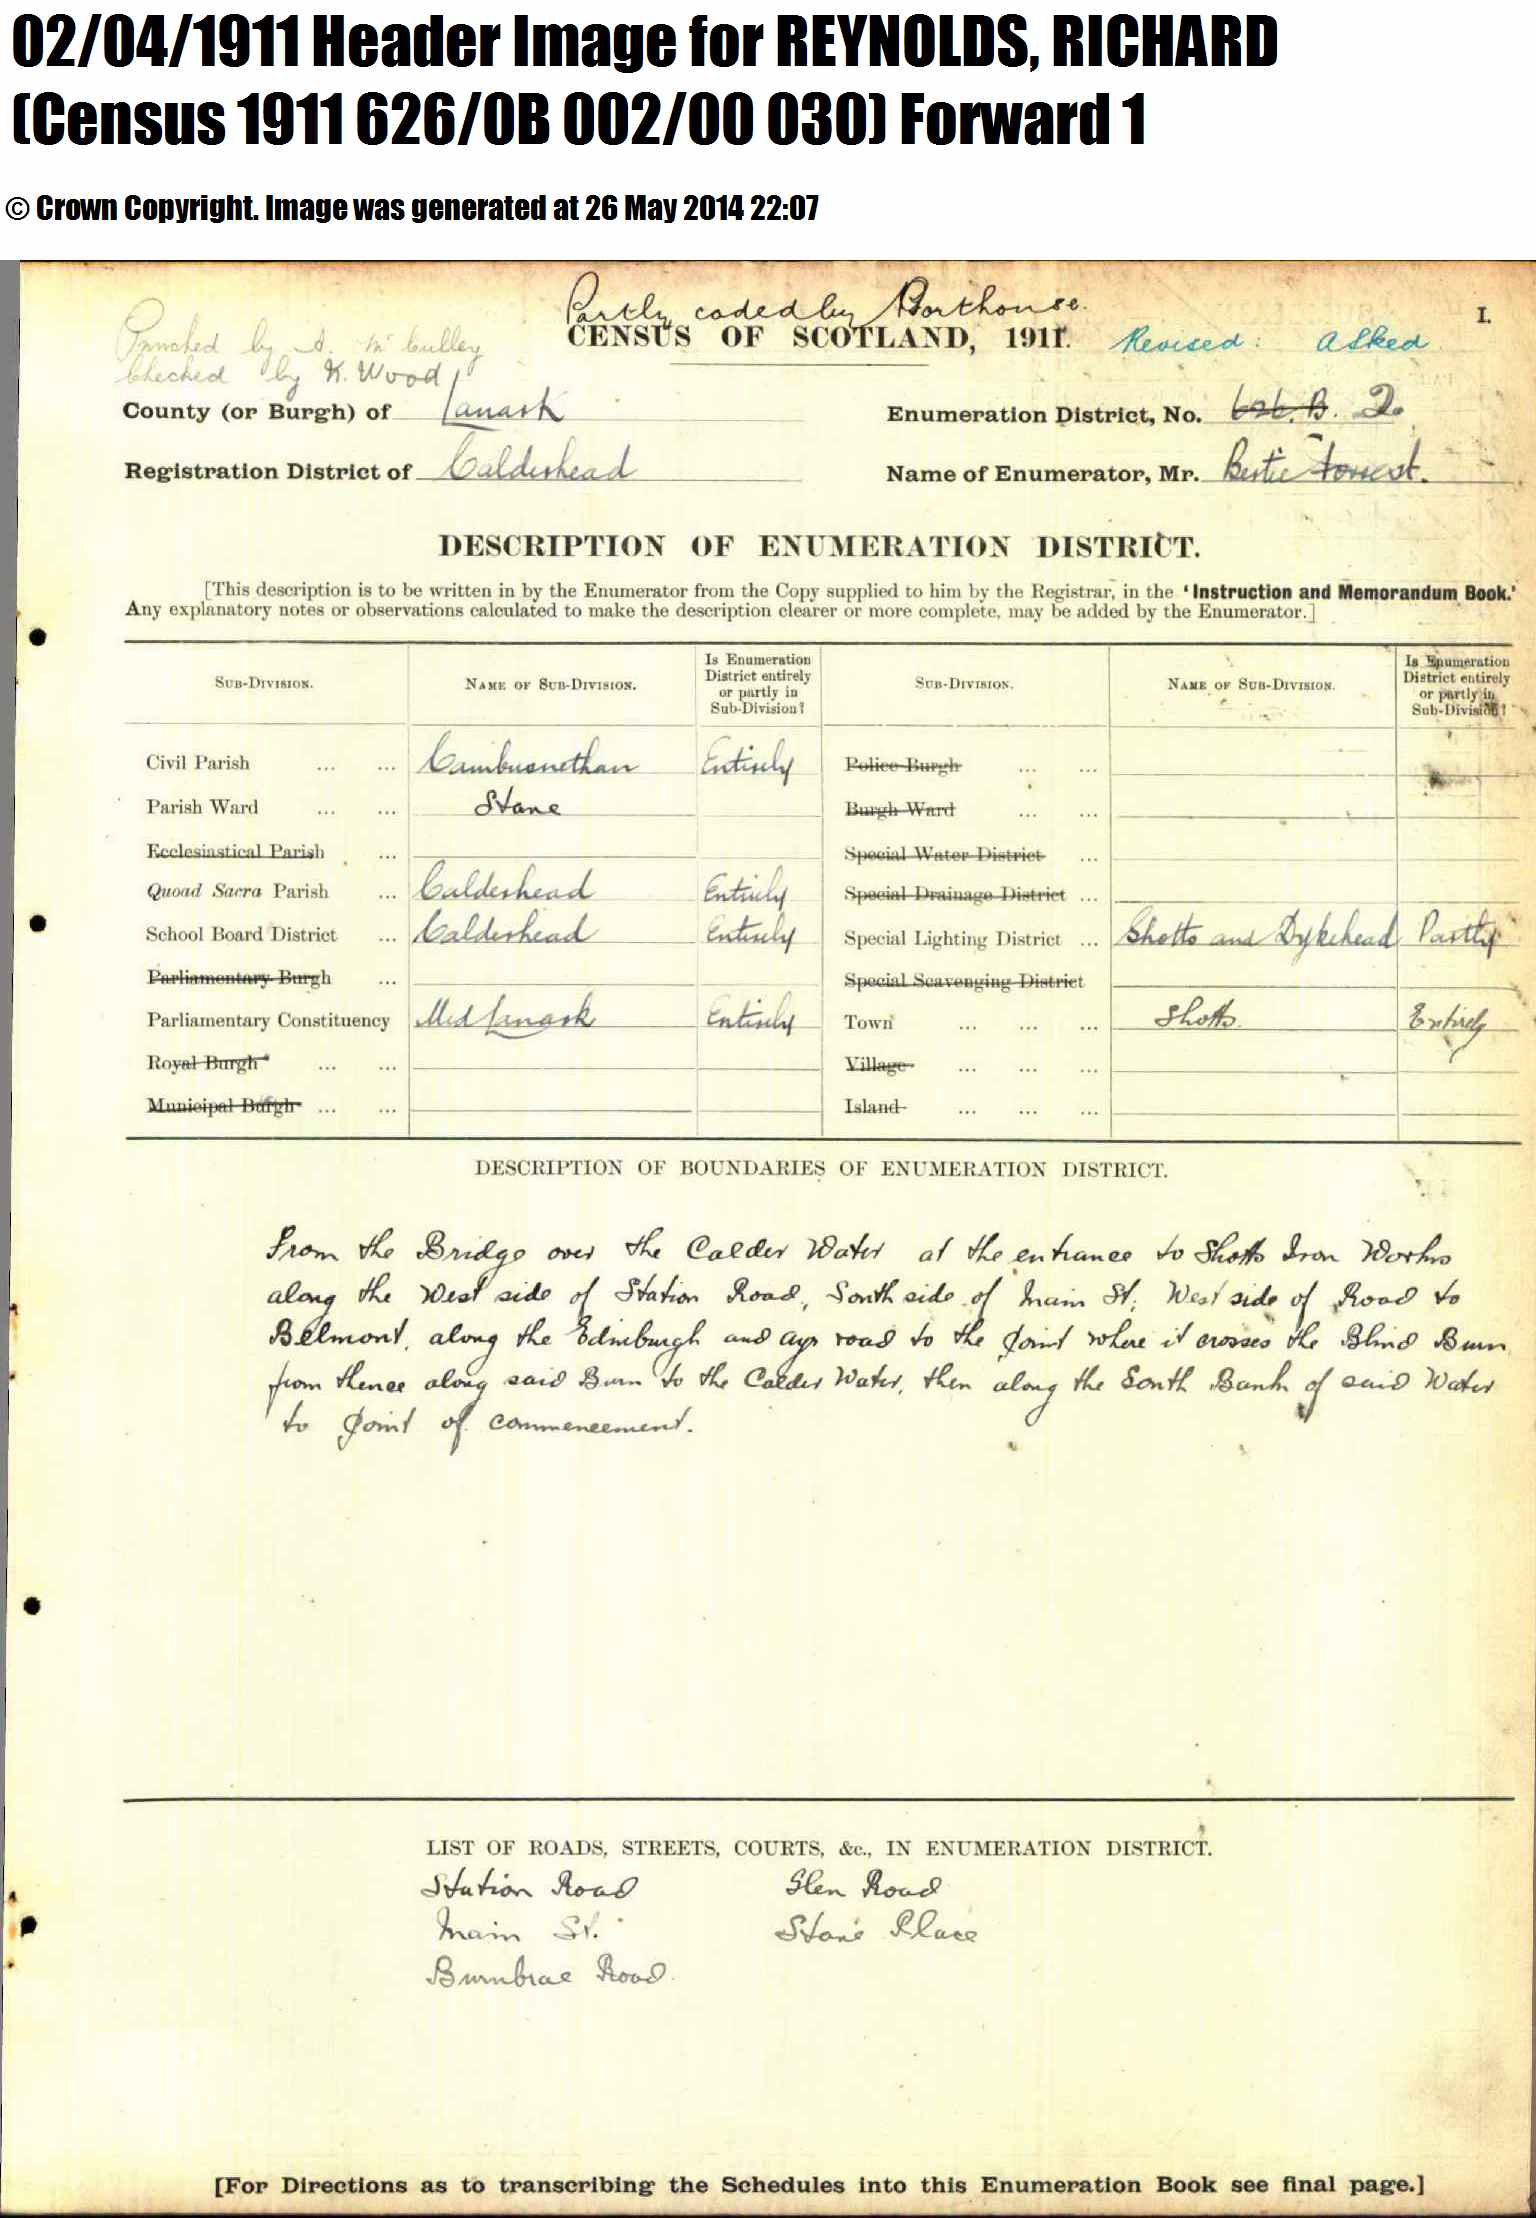 02/04/1911 Header Image for REYNOLDS, RICHARD
(Census 1911 626/0B 002/00 030) Forward 1
© Crown Copyright. Image was generated at 26 May 2014 22:07
Partly coded by Porthouse.
CENSUS OF SCOTLAND, 1911. Revised: Asked
I.
Punched by A. McCulley
Checked by K. Wood
County (or Burgh) of Lanark Enumeration District, No. 626.B. 2.
Registration District of Calderhead Name of Enumerator, Mr. Bertie Forrest.
DESCRIPTION OF ENUMERATION DISTRICT.
[This description is to be written in by the Enumerator from the Copy supplied to him by the Registrar, in the 'Instruction and Memorandum Book.'
Any explanatory notes or observations calculated to make the description clearer or more complete, may be added by the Enumerator.]
SUB-DIVISION. NAME OF SUB-DIVISION. Is Enumeration District entirely or partly in Sub-Division? SUB-DIVISION. NAME OF SUB-DIVISION. Is Enumeration District entirely or partly in Sub-Division?
Civil Parish ... ... Cambusnethan Entirely Police Burgh ... ...
Parish Ward ... ... Stane Burgh Ward ... ...
Ecclesiastical Parish ... Special Water District ...
Quoad Sacra Parish ... Calderhead Entirely Special Drainage District ...
School Board District ... Calderhead Entirely Special Lighting District ... Shotts and Dykehead Partly
Parliamentary Burgh ... Special Scavenging District
Parliamentary Constituency Mid Lanark Entirely Town ... ... ... Shotts. Entirely
Royal Burgh ... ... Village ... ... ...
Municipal Burgh ... ... Island ... ... ...
DESCRIPTION OF BOUNDARIES OF ENUMERATION DISTRICT.
From the Bridge over the Calder Water at the entrance to Shotts Iron Works
along the West side of Station Road, South side of Main St; West side of Road to
Belmont, along the Edinburgh and Ayr road to the point where it crosses the Blind Burn
from thence along said Burn to the Calder Water, then along the South Bank of said Water
to point of commencement.
LIST OF ROADS, STREETS, COURTS, &c., IN ENUMERATION DISTRICT.
Station Road Glen Road
Main St. Stane Place
Burnbrae Road.
[For Directions as to transcribing the Schedules into this Enumeration Book see final page.]